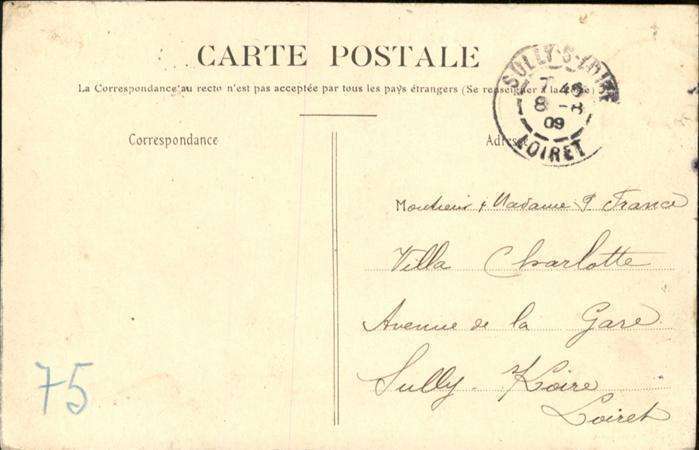 CARTE POSTALE
La Correspondance au recto n'est pas acceptée par tous les pays étrangers (Se renseigner à la Poste)
SULLY-S-LOIRE
7 45
8 -8
09
LOIRET
Correspondance
Adresse
Monsieur & Madame France
Villa Charlotte
Avenue de la Gare
Sully. Loire
Loiret
75